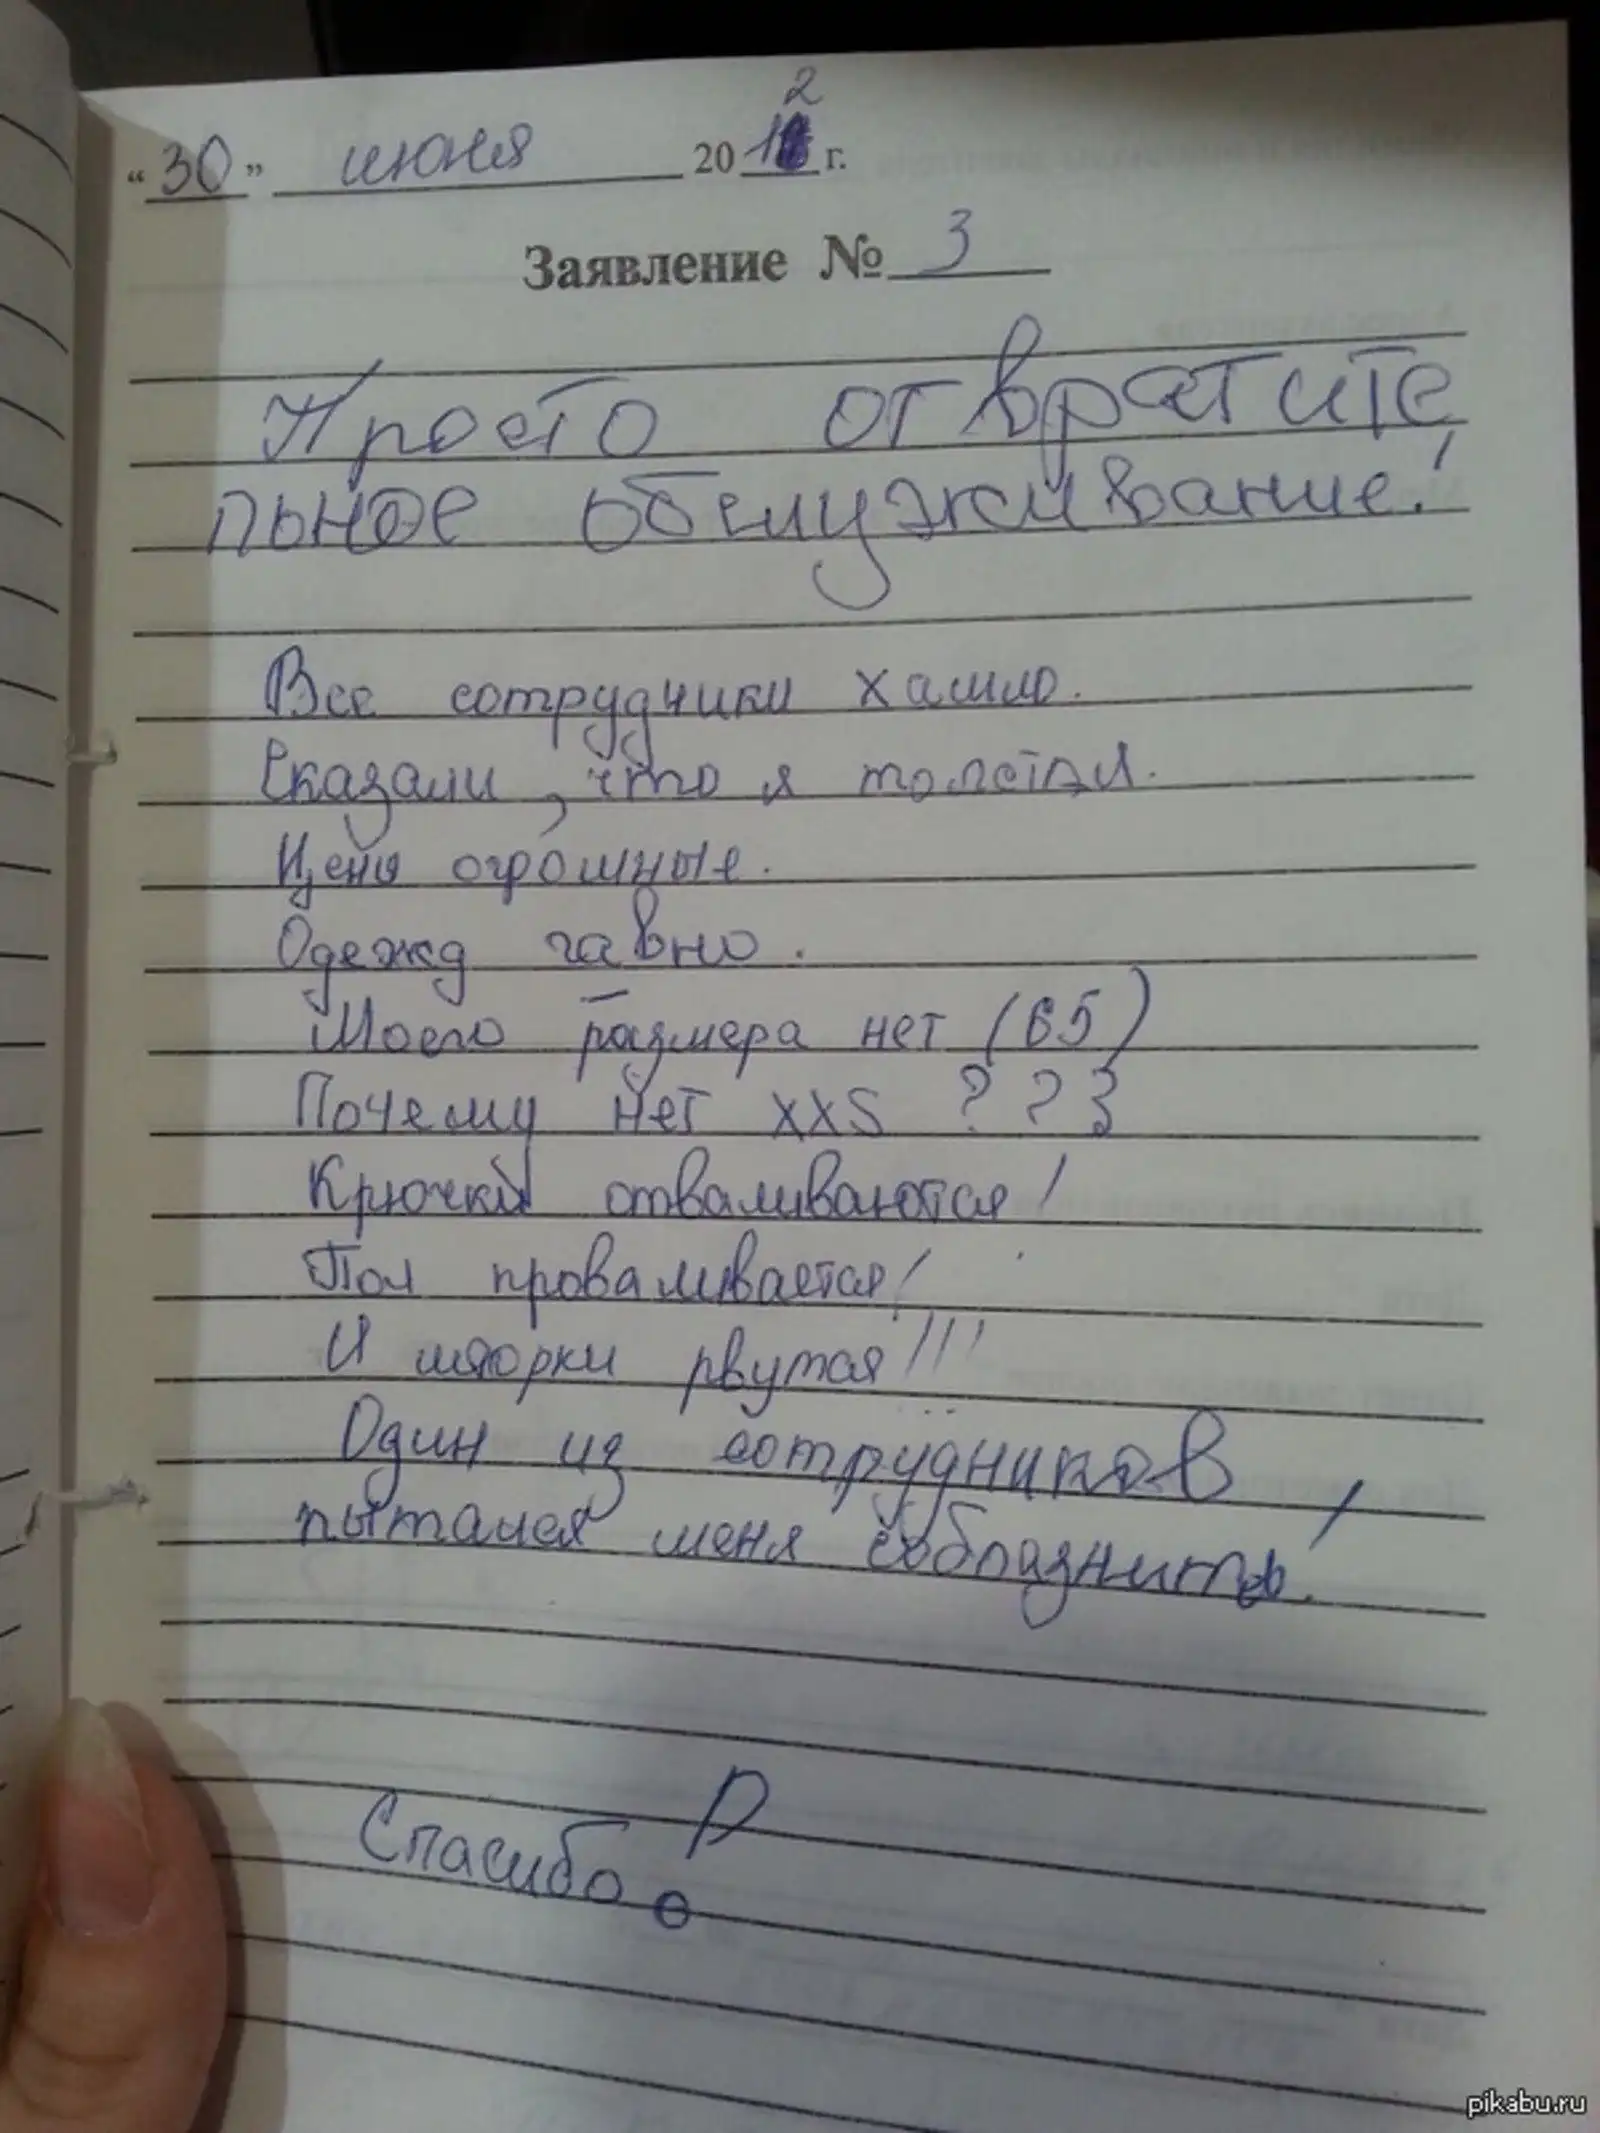 "30" июня 2012 г.
Заявление № 3
Просто отвратите
льное обслуживание!
Все сотрудники хамло.
Сказали, что я толстая.
Цены огромные.
Одежд гавно.
Моего размера нет (65)
Почему нет XXS ???
Крючки отваливаются!
Пол проваливается!
И шторки рвутся!!!
Один из сотрудников,
пытался меня соблазнить!
Спасибо!
pikabu.ru